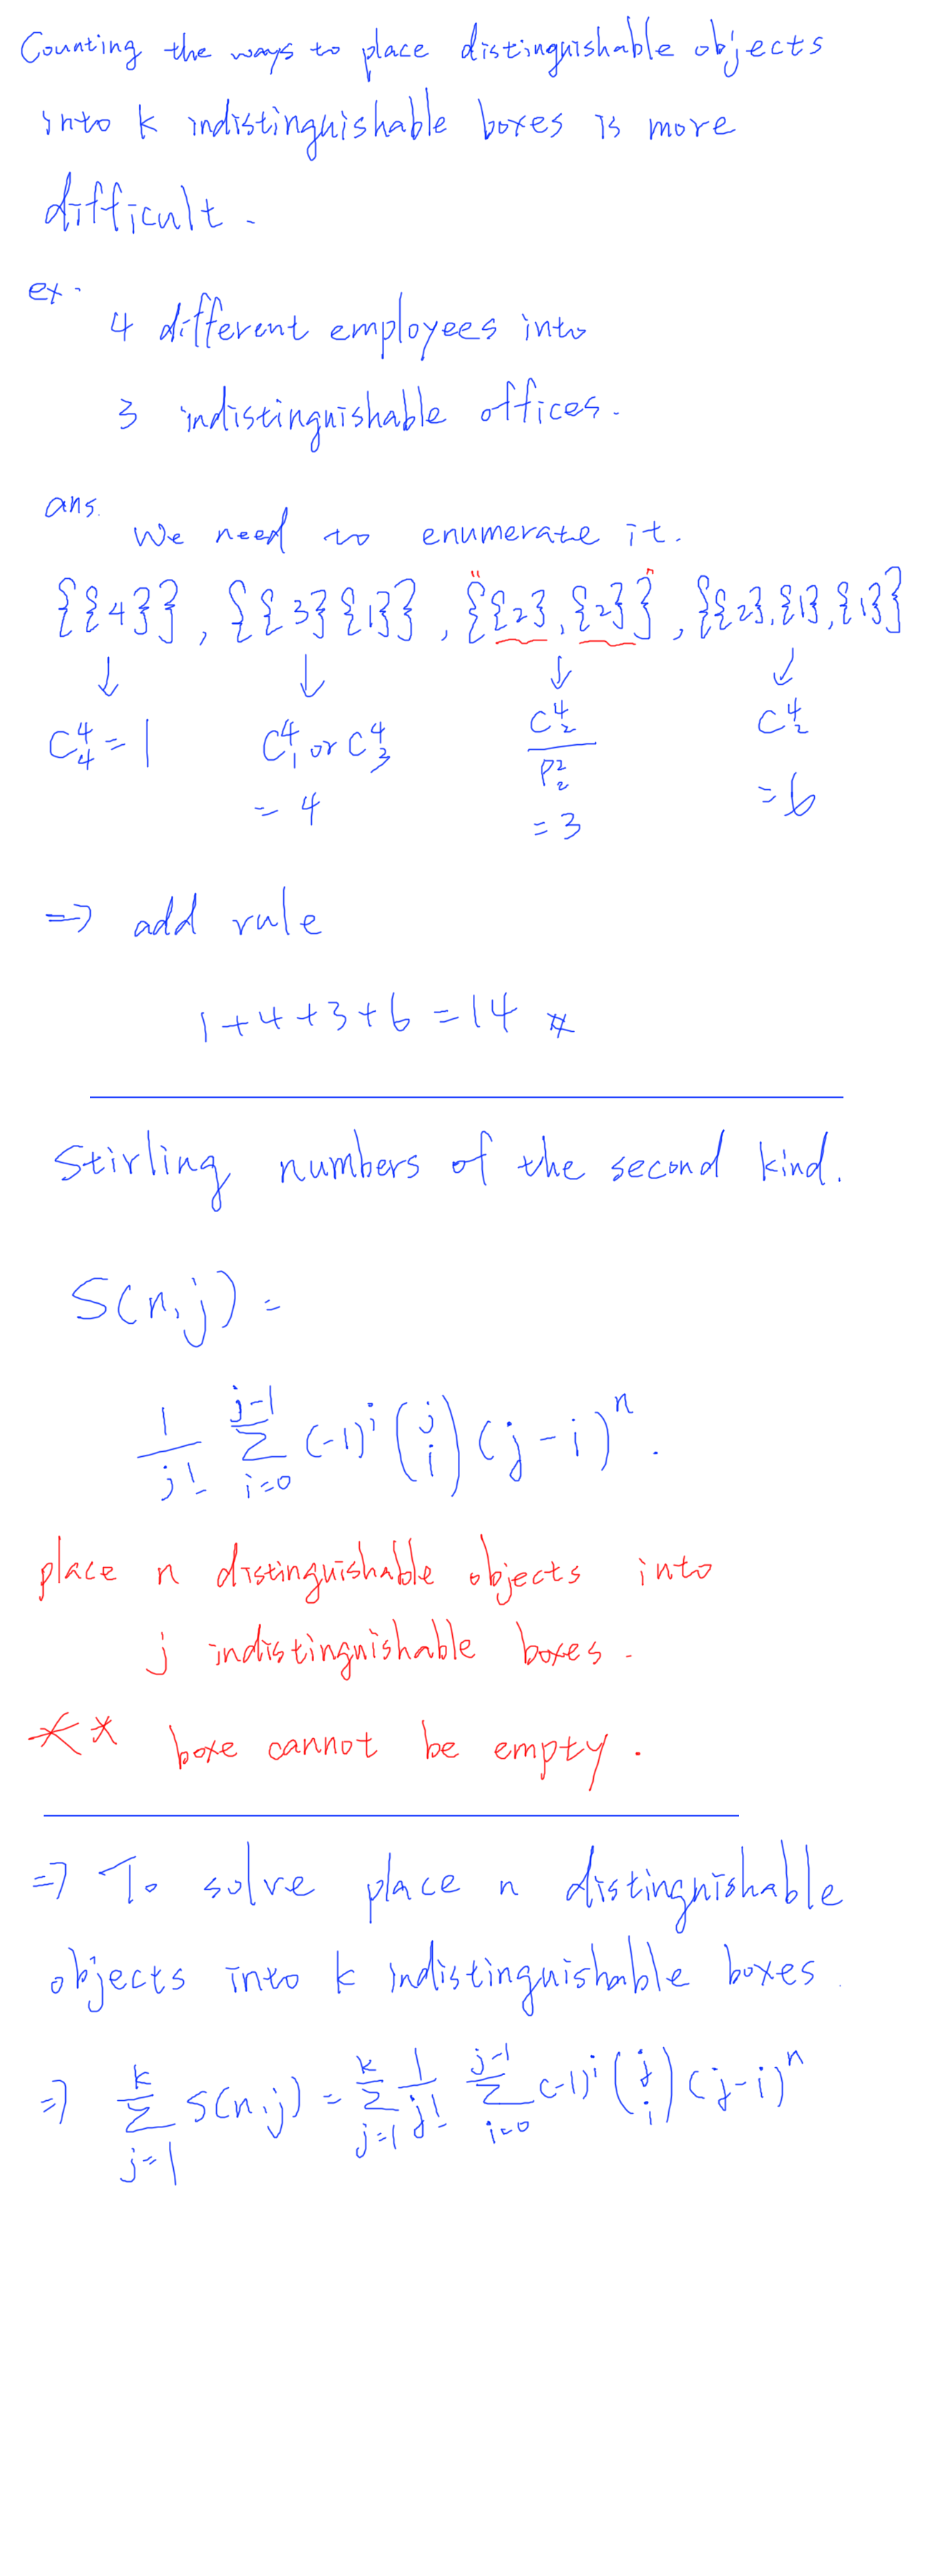 Counting the ways to place distinguishable objects
into k indistinguishable boxes is more
difficult.
ex.
4 different employees into
3 indistinguishable offices.
ans.
We need to enumerate it.
{{4}}, {{3}{1}}, "{{2},{2}}", {{2},{1},{1}}
↓ ↓ ↓ ↓
C⁴₄ = 1 C⁴₁ or C⁴₃ = 4 C⁴₂ / P²₂ = 3 C⁴₂ = 6
=> add rule
1+4+3+6=14 #
Stirling numbers of the second kind.
S(n,j) =
1/j! Σ_{i=0}^{j-1} (-1)^i (j i) (j-i)^n.
place n distinguishable objects into
j indistinguishable boxes.
** boxe cannot be empty.
=> To solve place n distinguishable
objects into k indistinguishable boxes.
=> Σ_{j=1}^{k} S(n,j) = Σ_{j=1}^{k} 1/j! Σ_{i=0}^{j-1} (-1)^i (j i) (j-i)^n